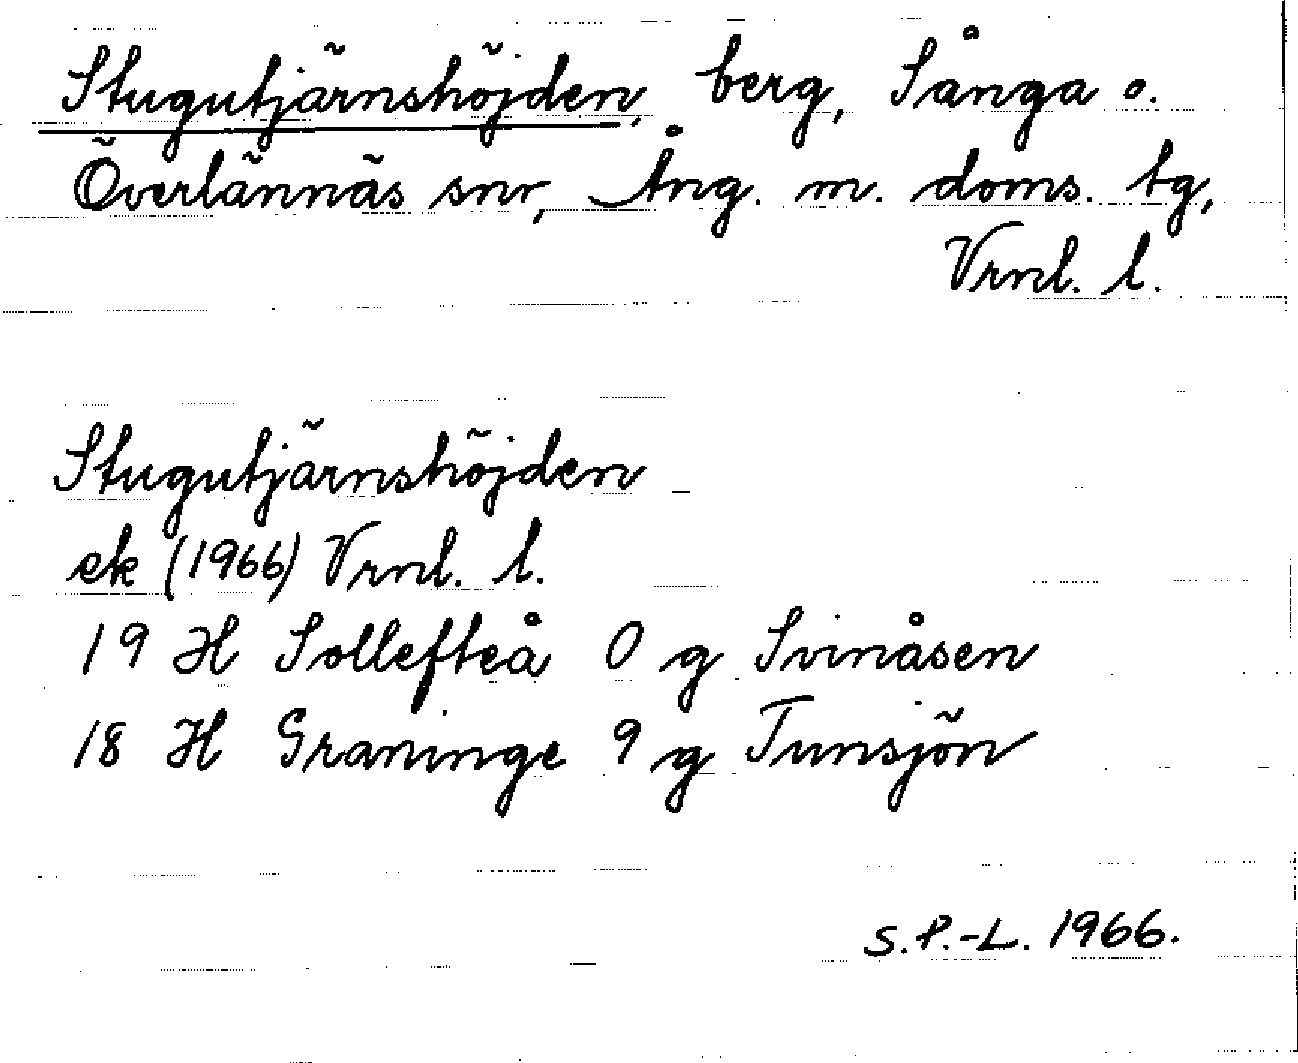 Stugutjärnshöjden, berg, Sånga o.
Överlännäs snr, Ång. m. doms. tg,
Vrnl. l.
Stugutjärnshöjden
ek (1966) Vrnl. l.
19 H Sollefteå 0 g Svinåsen
18 H Graninge 9 g Tunsjön
S.P.-L. 1966.